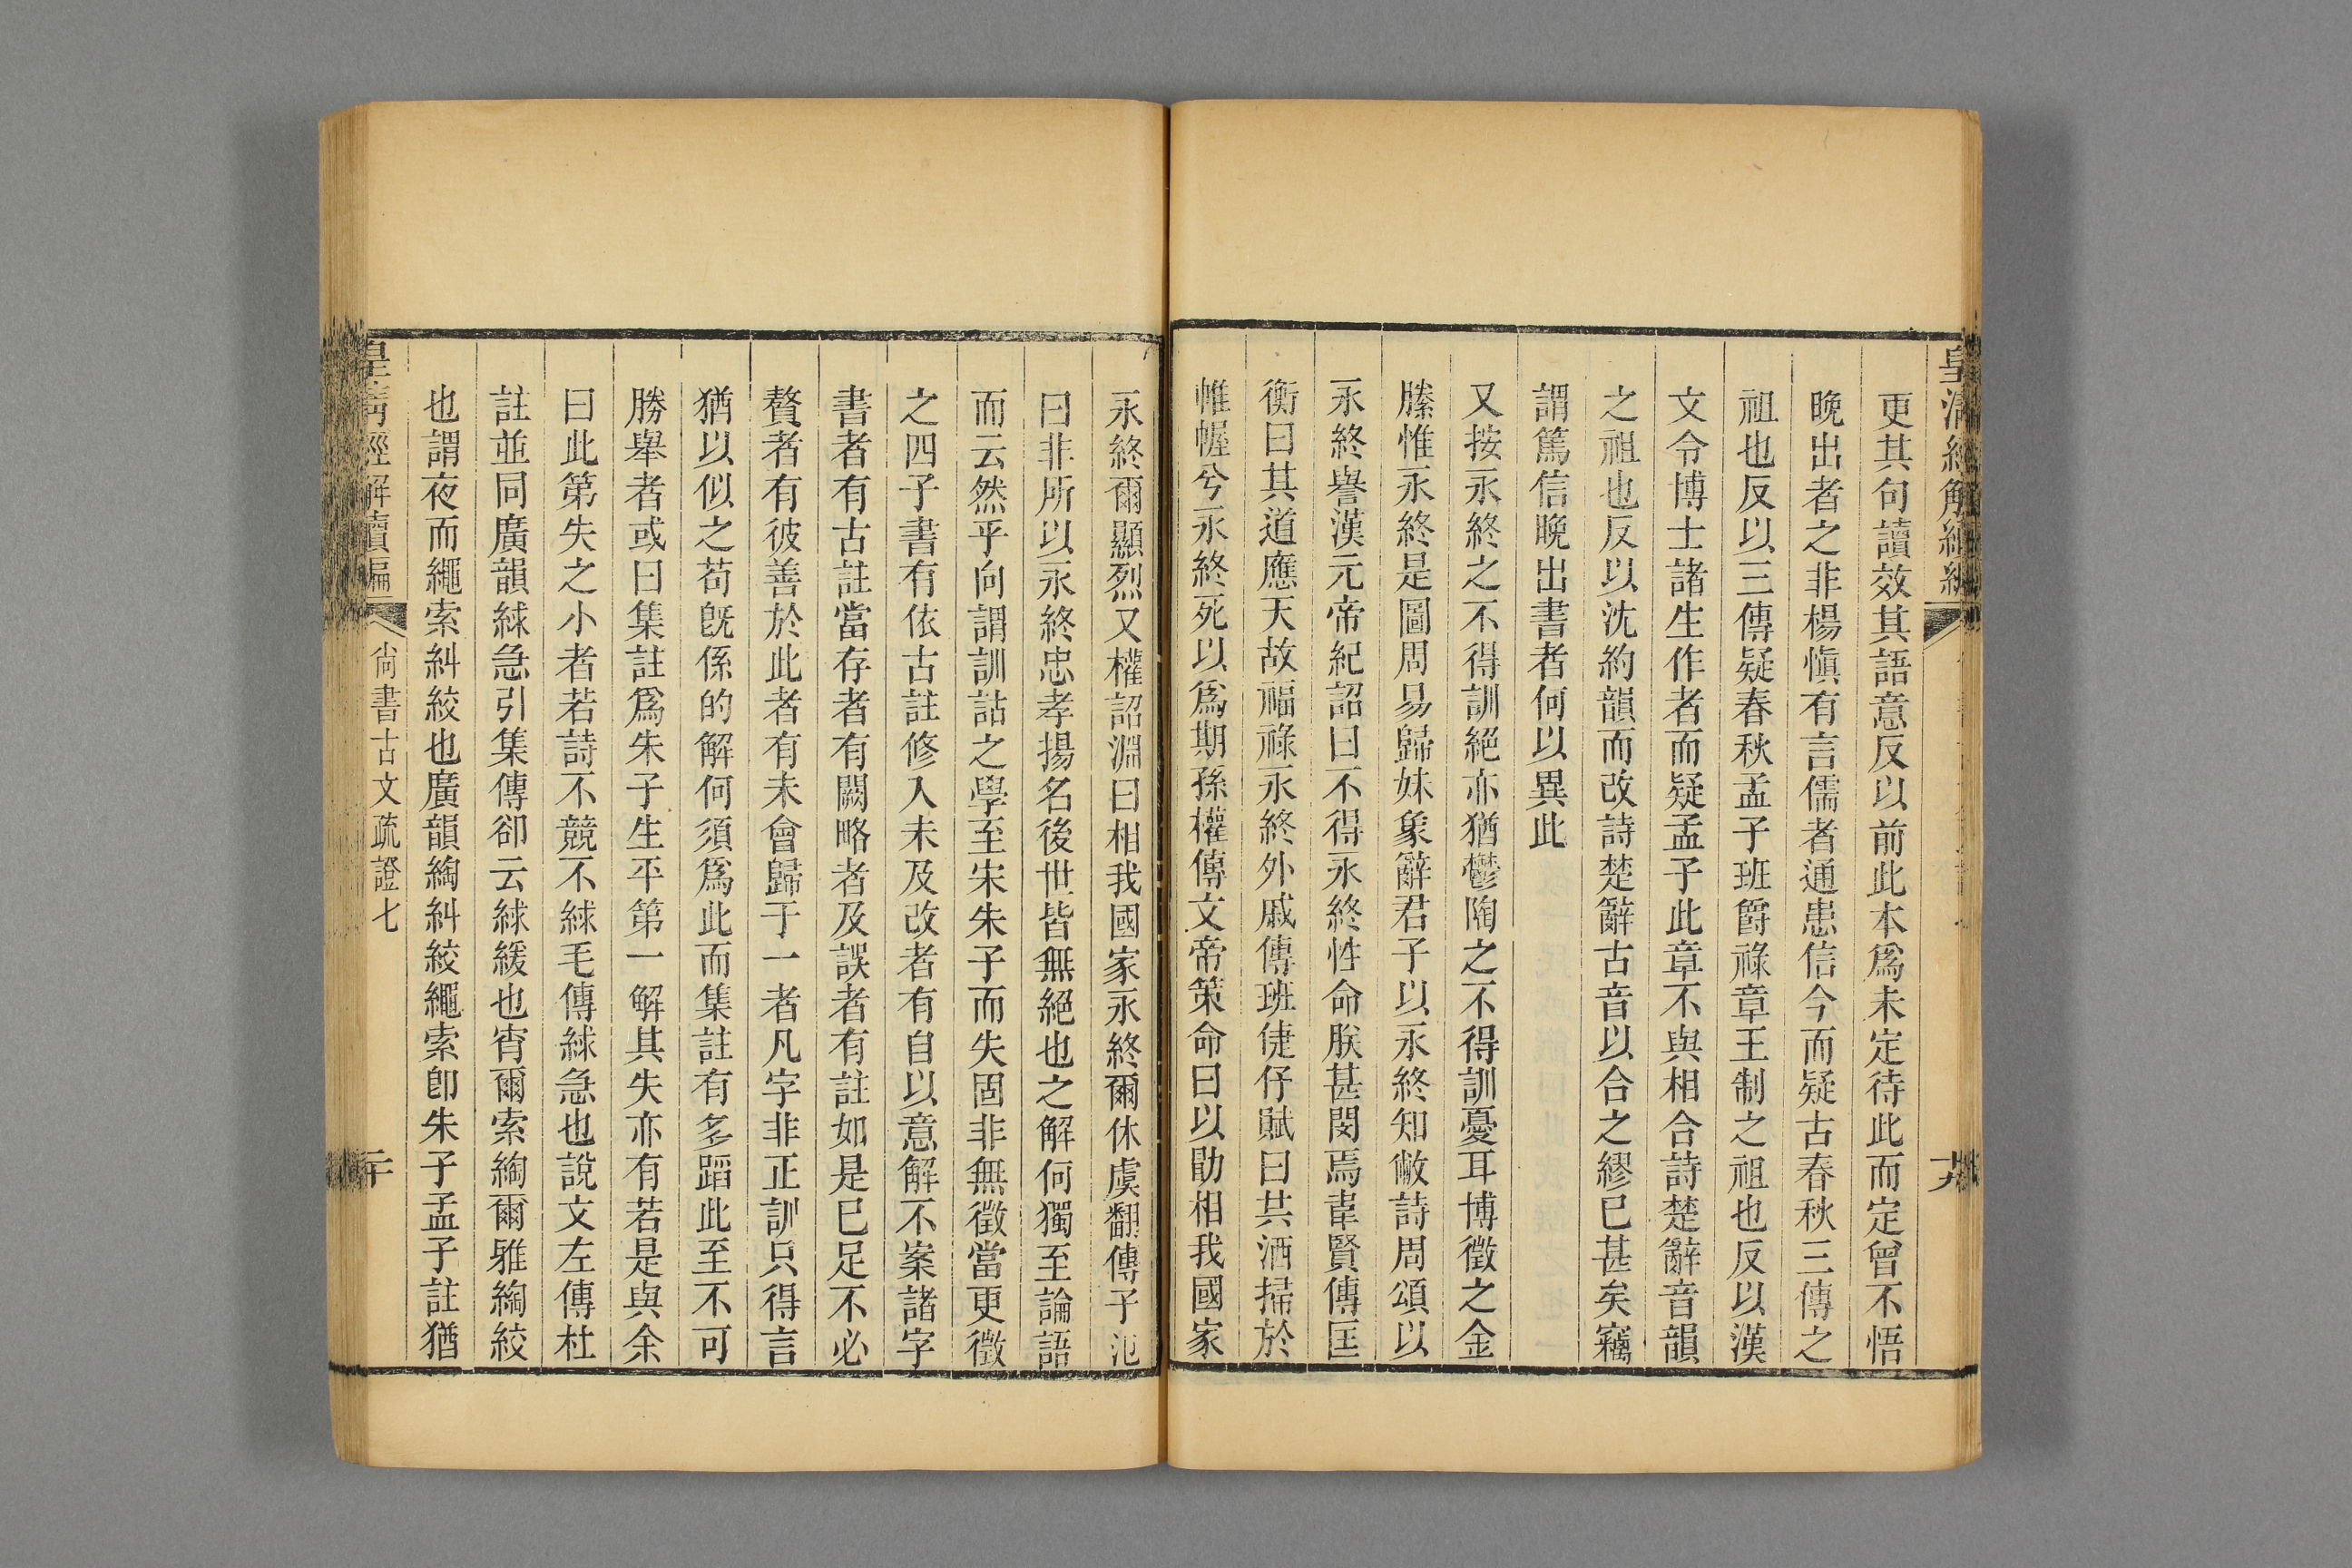 皇清經解續編
更其句讀效其語意反以前此本爲未定待此而定曾不悟
晚出者之非楊愼有言儒者通患信今而疑古春秋三傳之
祖也反以三傳疑春秋孟子班爵祿章王制之祖也反以漢
文令博士諸生作者而疑孟子此章不與相合詩楚辭音韻
之祖也反以沈約韻而改詩楚辭古音以合之繆已甚矣竊
謂篤信晚出書者何以異此
又按永終之不得訓絕亦猶鬱陶之不得訓憂耳博徵之金
縢惟永終是圖周易歸妹象辭君子以永終知敝詩周頌以
永終譽漢元帝紀詔曰不得永終性命朕甚閔焉韋賢傳匡
衡曰其道應天故福祿永終外戚傳班倢伃賦曰共洒掃於
帷幄兮永終死以爲期孫權傳文帝策命曰以勛相我國家
永終爾顯烈又權詔淵曰相我國家永終爾休虞翻傳子氾
曰非所以永終忠孝揚名後世皆無絕也之解何獨至論語
而云然乎向謂訓詁之學至宋朱子而失固非無徵當更徵
之四子書有依古註修入未及改者有自以意解不案諸字
書者有古註當存者有闕略者及誤者有註如是已足不必
贅者有彼善於此者有未會歸于一者凡字非正訓只得言
猶以似之苟旣係的解何須爲此而集註有多蹈此至不可
勝舉者或曰集註爲朱子生平第一解其失亦有若是與余
曰此第失之小者若詩不競不絿毛傳絿急也說文左傳杜
註並同廣韻絿急引集傳卻云絿緩也宵爾索綯爾雅綯絞
也謂夜而繩索糾絞也廣韻綯糾絞繩索卽朱子孟子註猶
皇清經解續編 尙書古文疏證七 二十